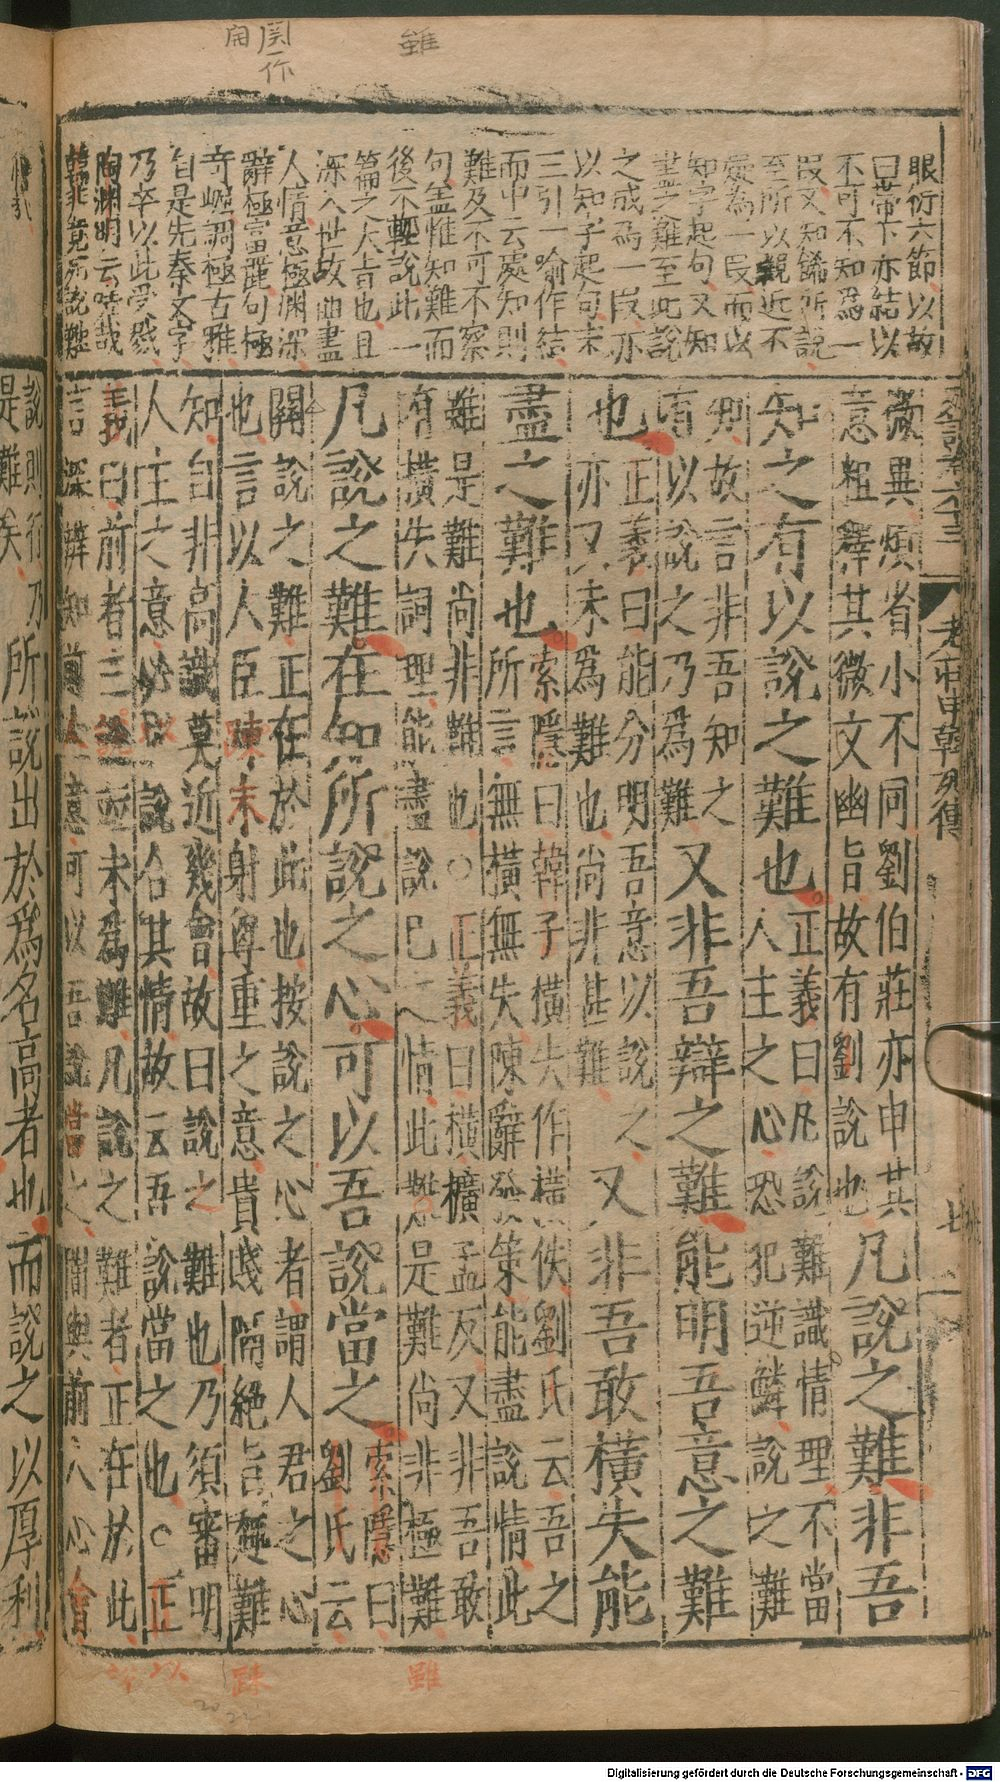 関一作
開
雖
眼所六節以故
曰帶下亦結以
不可不知爲一
段又知餙所說
至所以親近不
疑為一段而以
知字起句又知
盡之難至此說
之成爲一段亦
以知字起句末
三引一喻作結
而中云處知則
難及不可不察
句盖惟知難而
後不輕說此一
篇之大旨也且
深入世故曲盡
人情意極淵深
辭極富麗句極
奇崛調極古雅
自是先秦文字
乃卒以此受戮
陶淵明云哀哉
韓非竟死說難
老莊申韓列傳
七
微異煩省小不同劉伯莊亦申其
意粗釋其微文幽旨故有劉說也
凡說之難非吾
知之有以說之難也
正義曰凡說難識情理不當
人主之心恐犯逆鱗說之難
知故言非吾知之
有以說之乃爲難
又非吾辯之難能明吾意之難
也
正義曰能分明吾意以說之
亦又未爲難也尚非甚難
又非吾敢橫失能
盡之難也
索隱曰韓子橫失作橫佚劉氏云吾之
所言無橫無失陳辭發策能盡說情此
雖是難尚非難也○正義曰橫擴孟反又非吾敢
有橫失詞理能盡說己之情此雖是難尚非極難
凡說之難在知所說之心可以吾說當之
索隱曰
劉氏云
關說之難正在於此也按說之心者謂人君之心
也言以人臣疎末射尊重之意貴賤隔絕旨疑難
知自非高識莫近幾會故曰說之難也乃須審明
人主之意必以說合其情故云吾說當之也○正
義曰前者三說並未爲難凡說之難者正在於此
言深辨知前人意可以吾說當之闇與前人心會
說則行乃
是難矣
所說出於爲名高者也而說之以厚利
雖
踈
以
說
Digitalisierung gefördert durch die Deutsche Forschungsgemeinschaft - DFG